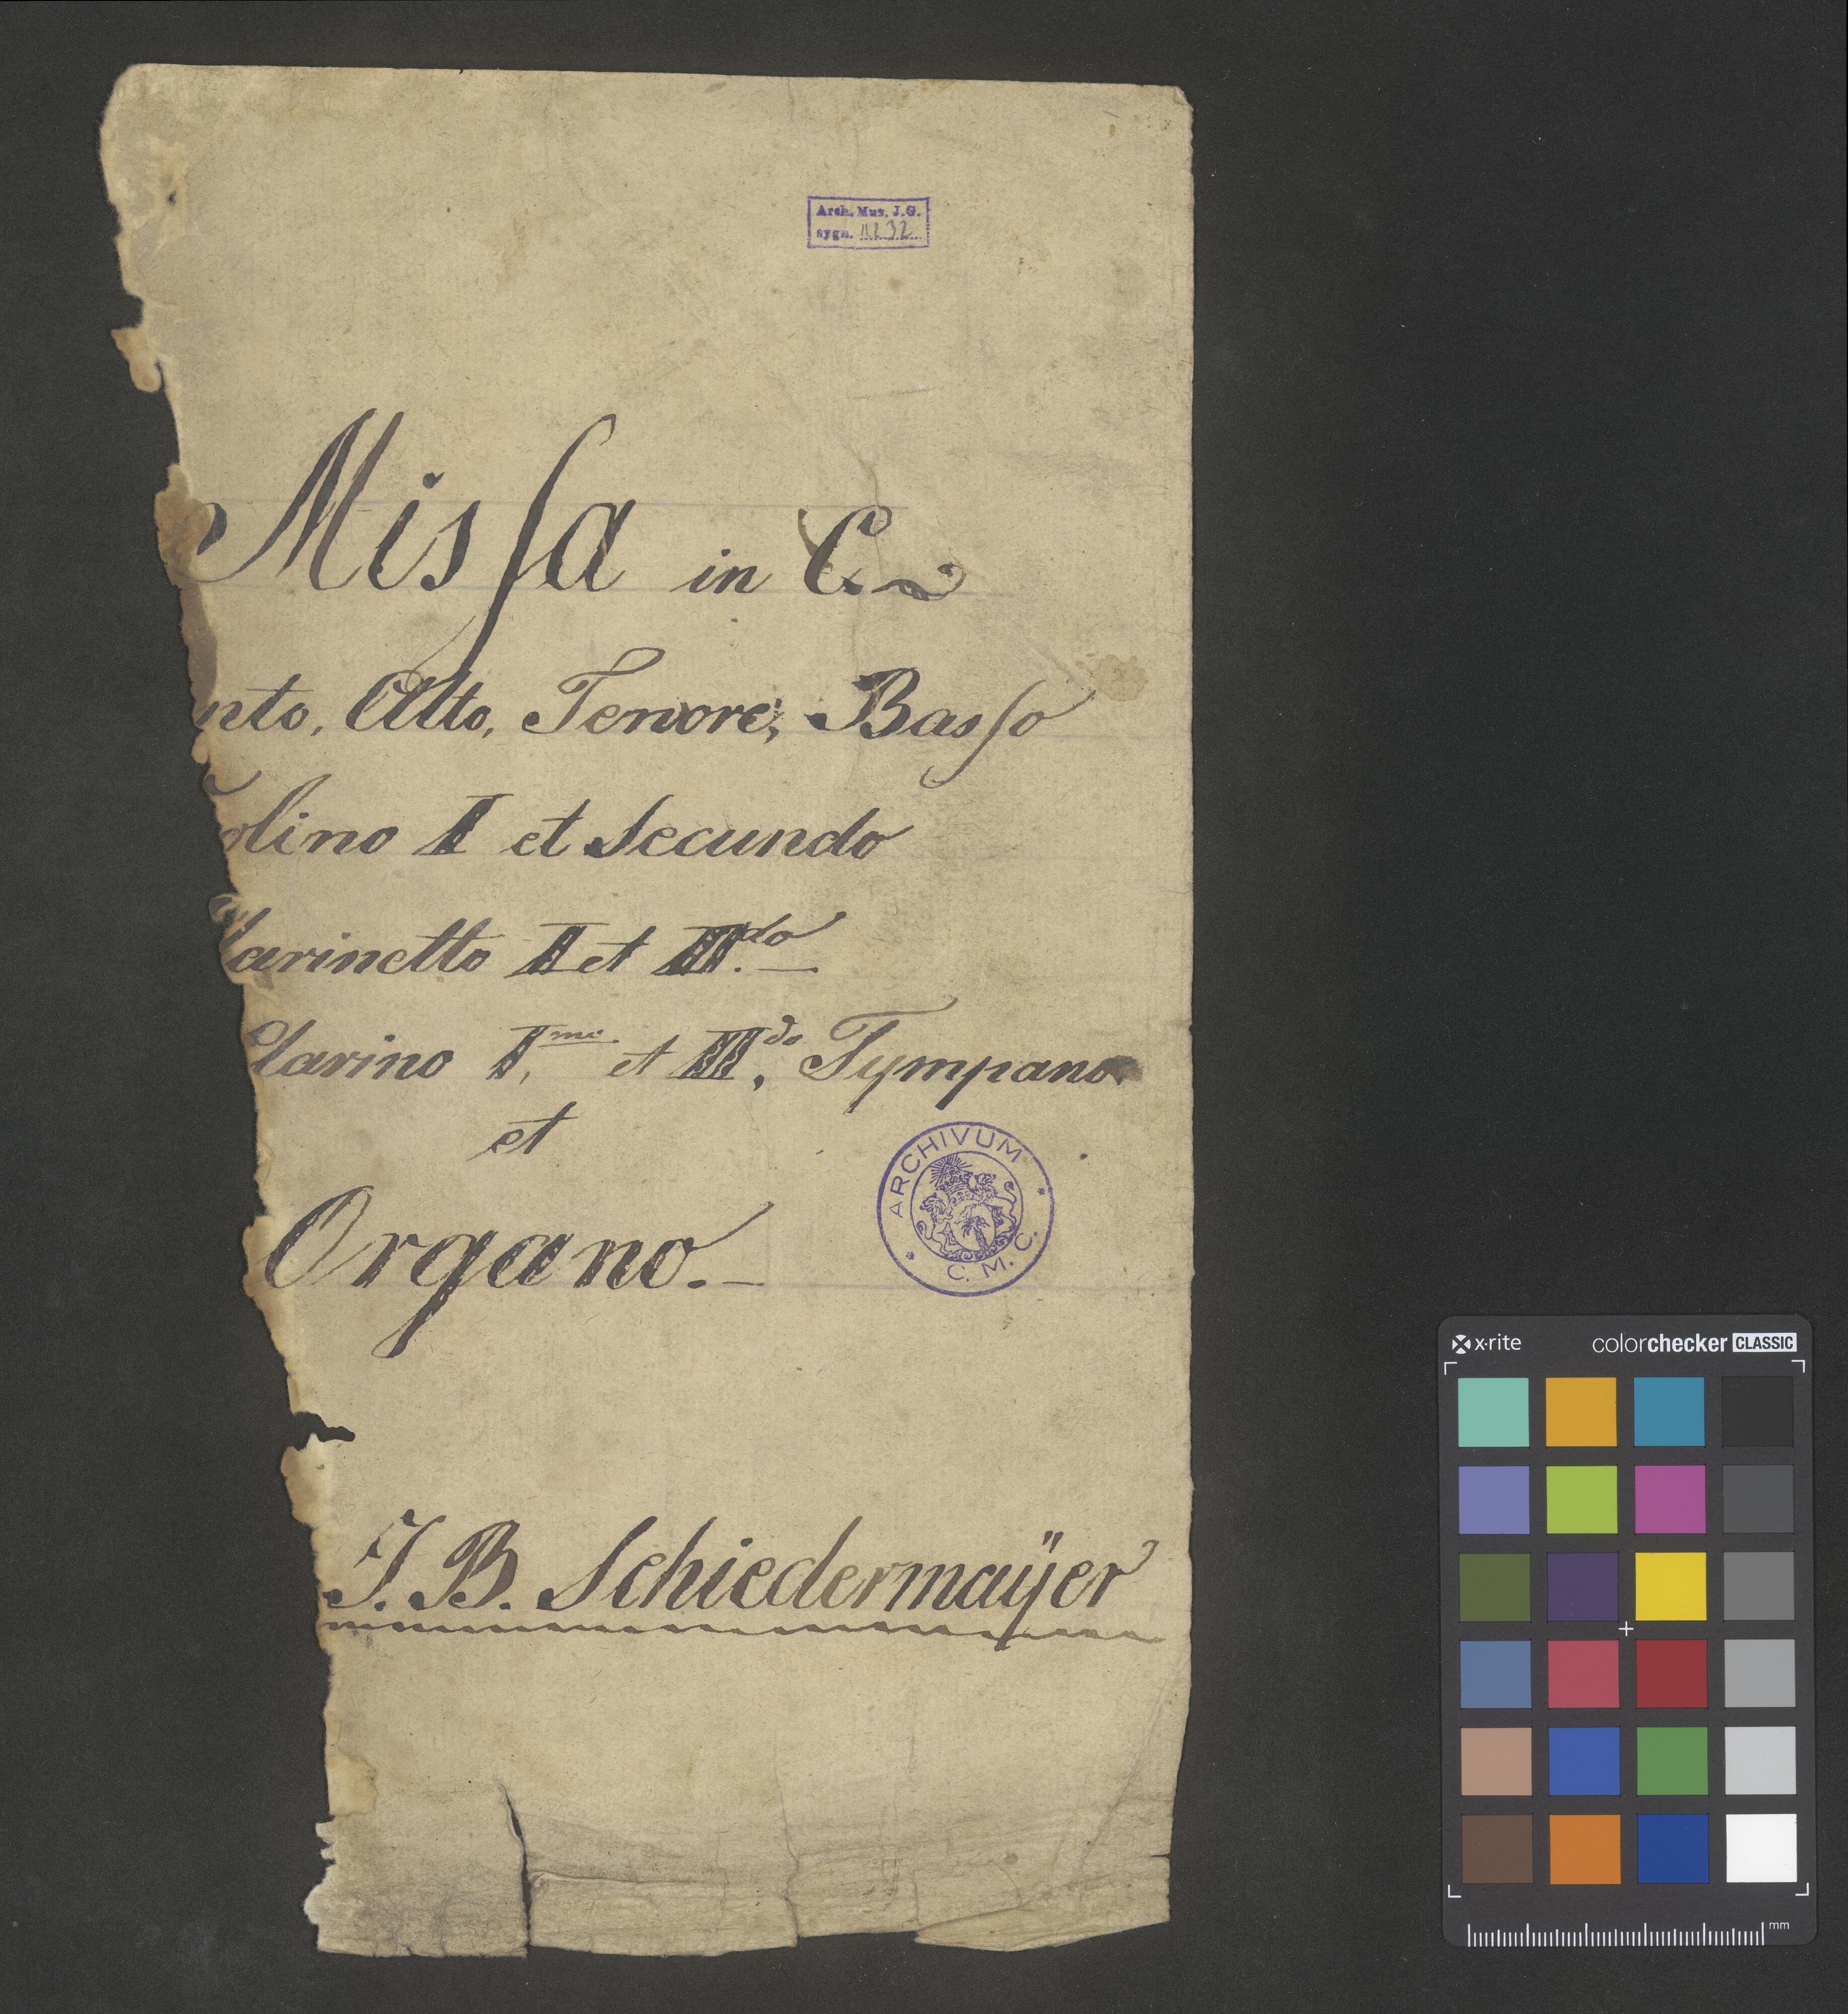 Arch. Mus. J.G.
sygn. III 32
Missa in C.
nto, Alto, Tenore, Basso
olino I et Secundo
larinetto I et II.do
Clarino I.mo et II.do Tympano.
et
Organo.
ARCHIVUM
C. M. C.
J. B. Schiedermaÿer
x·rite
colorchecker CLASSIC
mm